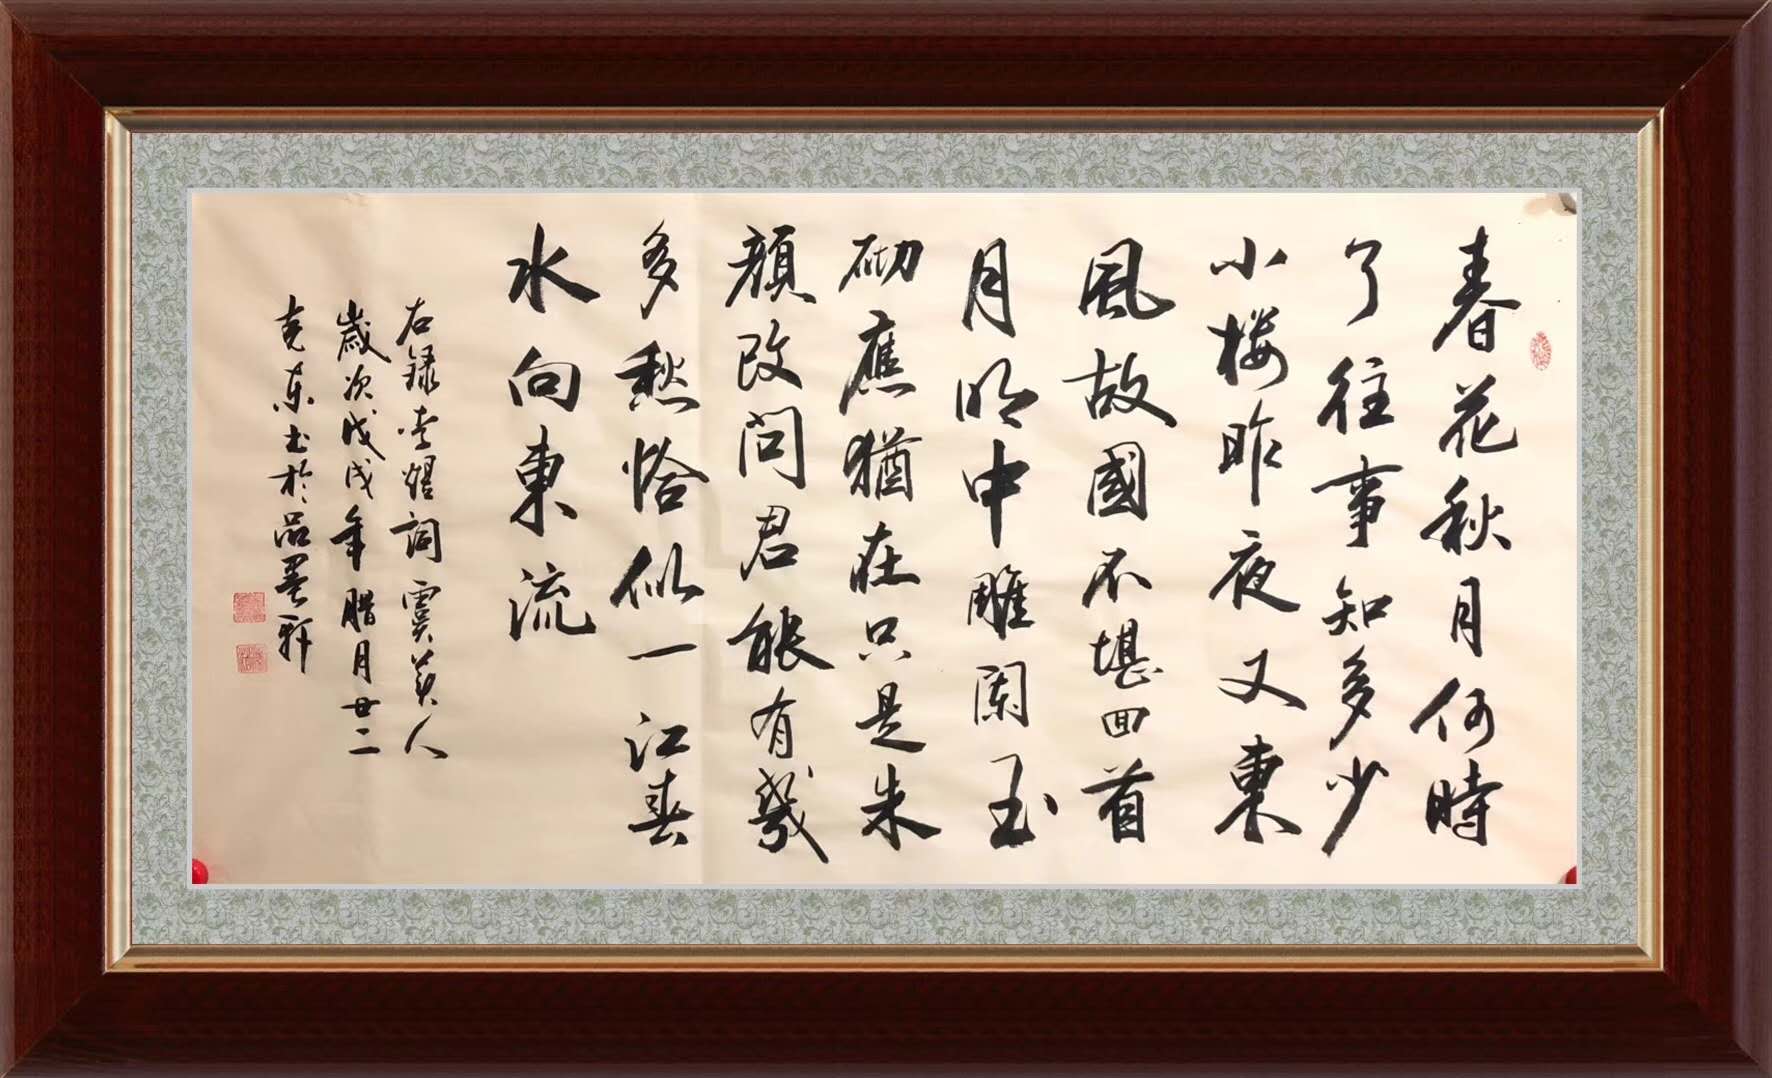 春花秋月何時
了往事知多少
小楼昨夜又東
風故國不堪回首
月明中雕闌玉
砌應猶在只是朱
顏改问君能有幾
多愁恰似一江春
水向東流
右録李煜词虞美人
歲次戊戌年腊月廿二
克东书於品墨轩